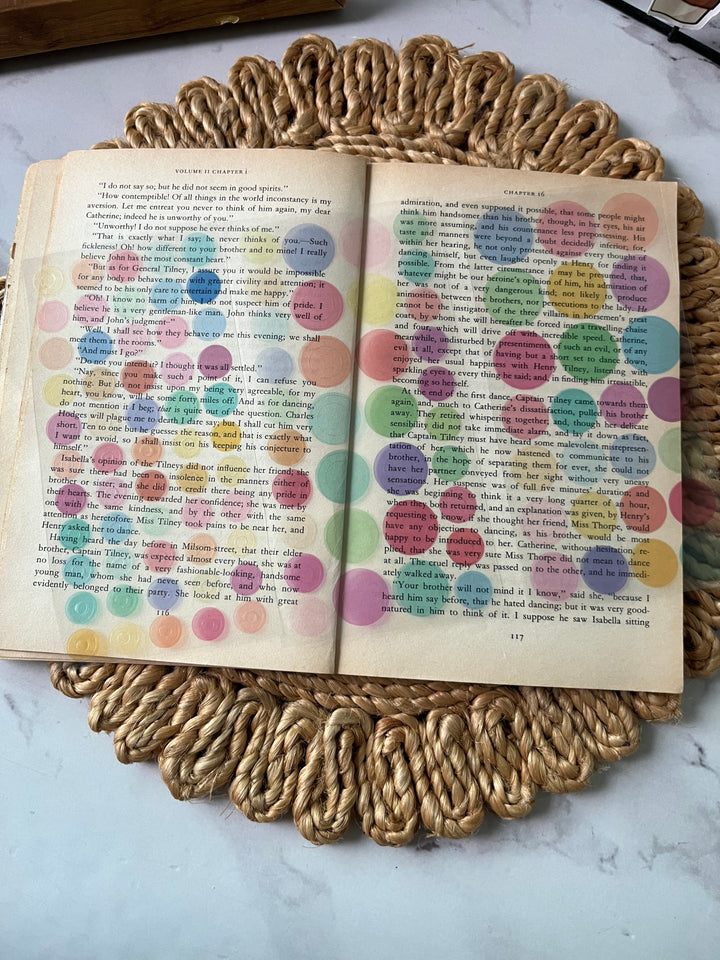 VOLUME II CHAPTER I
"I do not say so; but he did not seem in good spirits."
"How contemptible! Of all things in the world inconstancy is my
aversion. Let me entreat you never to think of him again, my dear
Catherine; indeed he is unworthy of you."
"Unworthy! I do not suppose he ever thinks of me."
"That is exactly what I say; he never thinks of you.—Such
fickleness! Oh! how different to your brother and to mine! I really
believe John has the most constant heart."
"But as for General Tilney, I assure you it would be impossible
for any body to behave to me with greater civility and attention; it
seemed to be his only care to entertain and make me happy."
"Oh! I know no harm of him; I do not suspect him of pride. I
believe he is a very gentleman-like man. John thinks very well of
him, and John's judgment—"
"Well, I shall see how they behave to me this evening; we shall
meet them at the rooms."
"And must I go?"
"Do not you intend it? I thought it was all settled."
"Nay, since you make such a point of it, I can refuse you
nothing. But do not insist upon my being very agreeable, for my
heart, you know, will be some forty miles off. And as for dancing,
do not mention it I beg; that is quite out of the question. Charles
Hodges will plague me to death I dare say; but I shall cut him very
short. Ten to one but he guesses the reason, and that is exactly what
I want to avoid, so I shall insist on his keeping his conjecture to
himself."
Isabella's opinion of the Tilneys did not influence her friend; she
was sure there had been no insolence in the manners either of
brother or sister; and she did not credit there being any pride in
their hearts. The evening rewarded her confidence; she was met by
one with the same kindness, and by the other with the same
attention as heretofore: Miss Tilney took pains to be near her, and
Henry asked her to dance.
Having heard the day before in Milsom-street, that their elder
brother, Captain Tilney, was expected almost every hour, she was at
no loss for the name of a very fashionable-looking, handsome
young man, whom she had never seen before, and who now
evidently belonged to their party. She looked at him with great
116
CHAPTER 16
admiration, and even supposed it possible, that some people might
think him handsomer than his brother, though, in her eyes, his air
was more assuming, and his countenance less prepossessing. His
taste and manners were beyond a doubt decidedly inferior; for,
within her hearing, he not only protested against every thought of
dancing himself, but even laughed openly at Henry for finding it
possible. From the latter circumstance it may be presumed, that,
whatever might be our heroine's opinion of him, his admiration of
her was not of a very dangerous kind; not likely to produce
animosities between the brothers, nor persecutions to the lady. He
cannot be the instigator of the three villains in horsemen's great
coats, by whom she will hereafter be forced into a travelling chaise
and four, which will drive off with incredible speed. Catherine,
meanwhile, undisturbed by presentiments of such an evil, or of any
evil at all, except that of having but a short set to dance down,
enjoyed her usual happiness with Henry Tilney, listening with
sparkling eyes to every thing he said; and, in finding him irresistible,
becoming so herself.
At the end of the first dance, Captain Tilney came towards them
again, and, much to Catherine's dissatisfaction, pulled his brother
away. They retired whispering together; and, though her delicate
sensibility did not take immediate alarm, and lay it down as fact,
that Captain Tilney must have heard some malevolent misrepresen-
tation of her, which he now hastened to communicate to his
brother, in the hope of separating them for ever, she could not
have her partner conveyed from her sight without very uneasy
sensations. Her suspense was of full five minutes' duration; and
she was beginning to think it a very long quarter of an hour,
when they both returned, and an explanation was given, by Henry's
requesting to know, if she thought her friend, Miss Thorpe, would
have any objection to dancing, as his brother would be most
happy to be introduced to her. Catherine, without hesitation, re-
plied, that she was very sure Miss Thorpe did not mean to dance
at all. The cruel reply was passed on to the other, and he immedi-
ately walked away.
"Your brother will not mind it I know," said she, "because I
heard him say before, that he hated dancing; but it was very good-
natured in him to think of it. I suppose he saw Isabella sitting
117